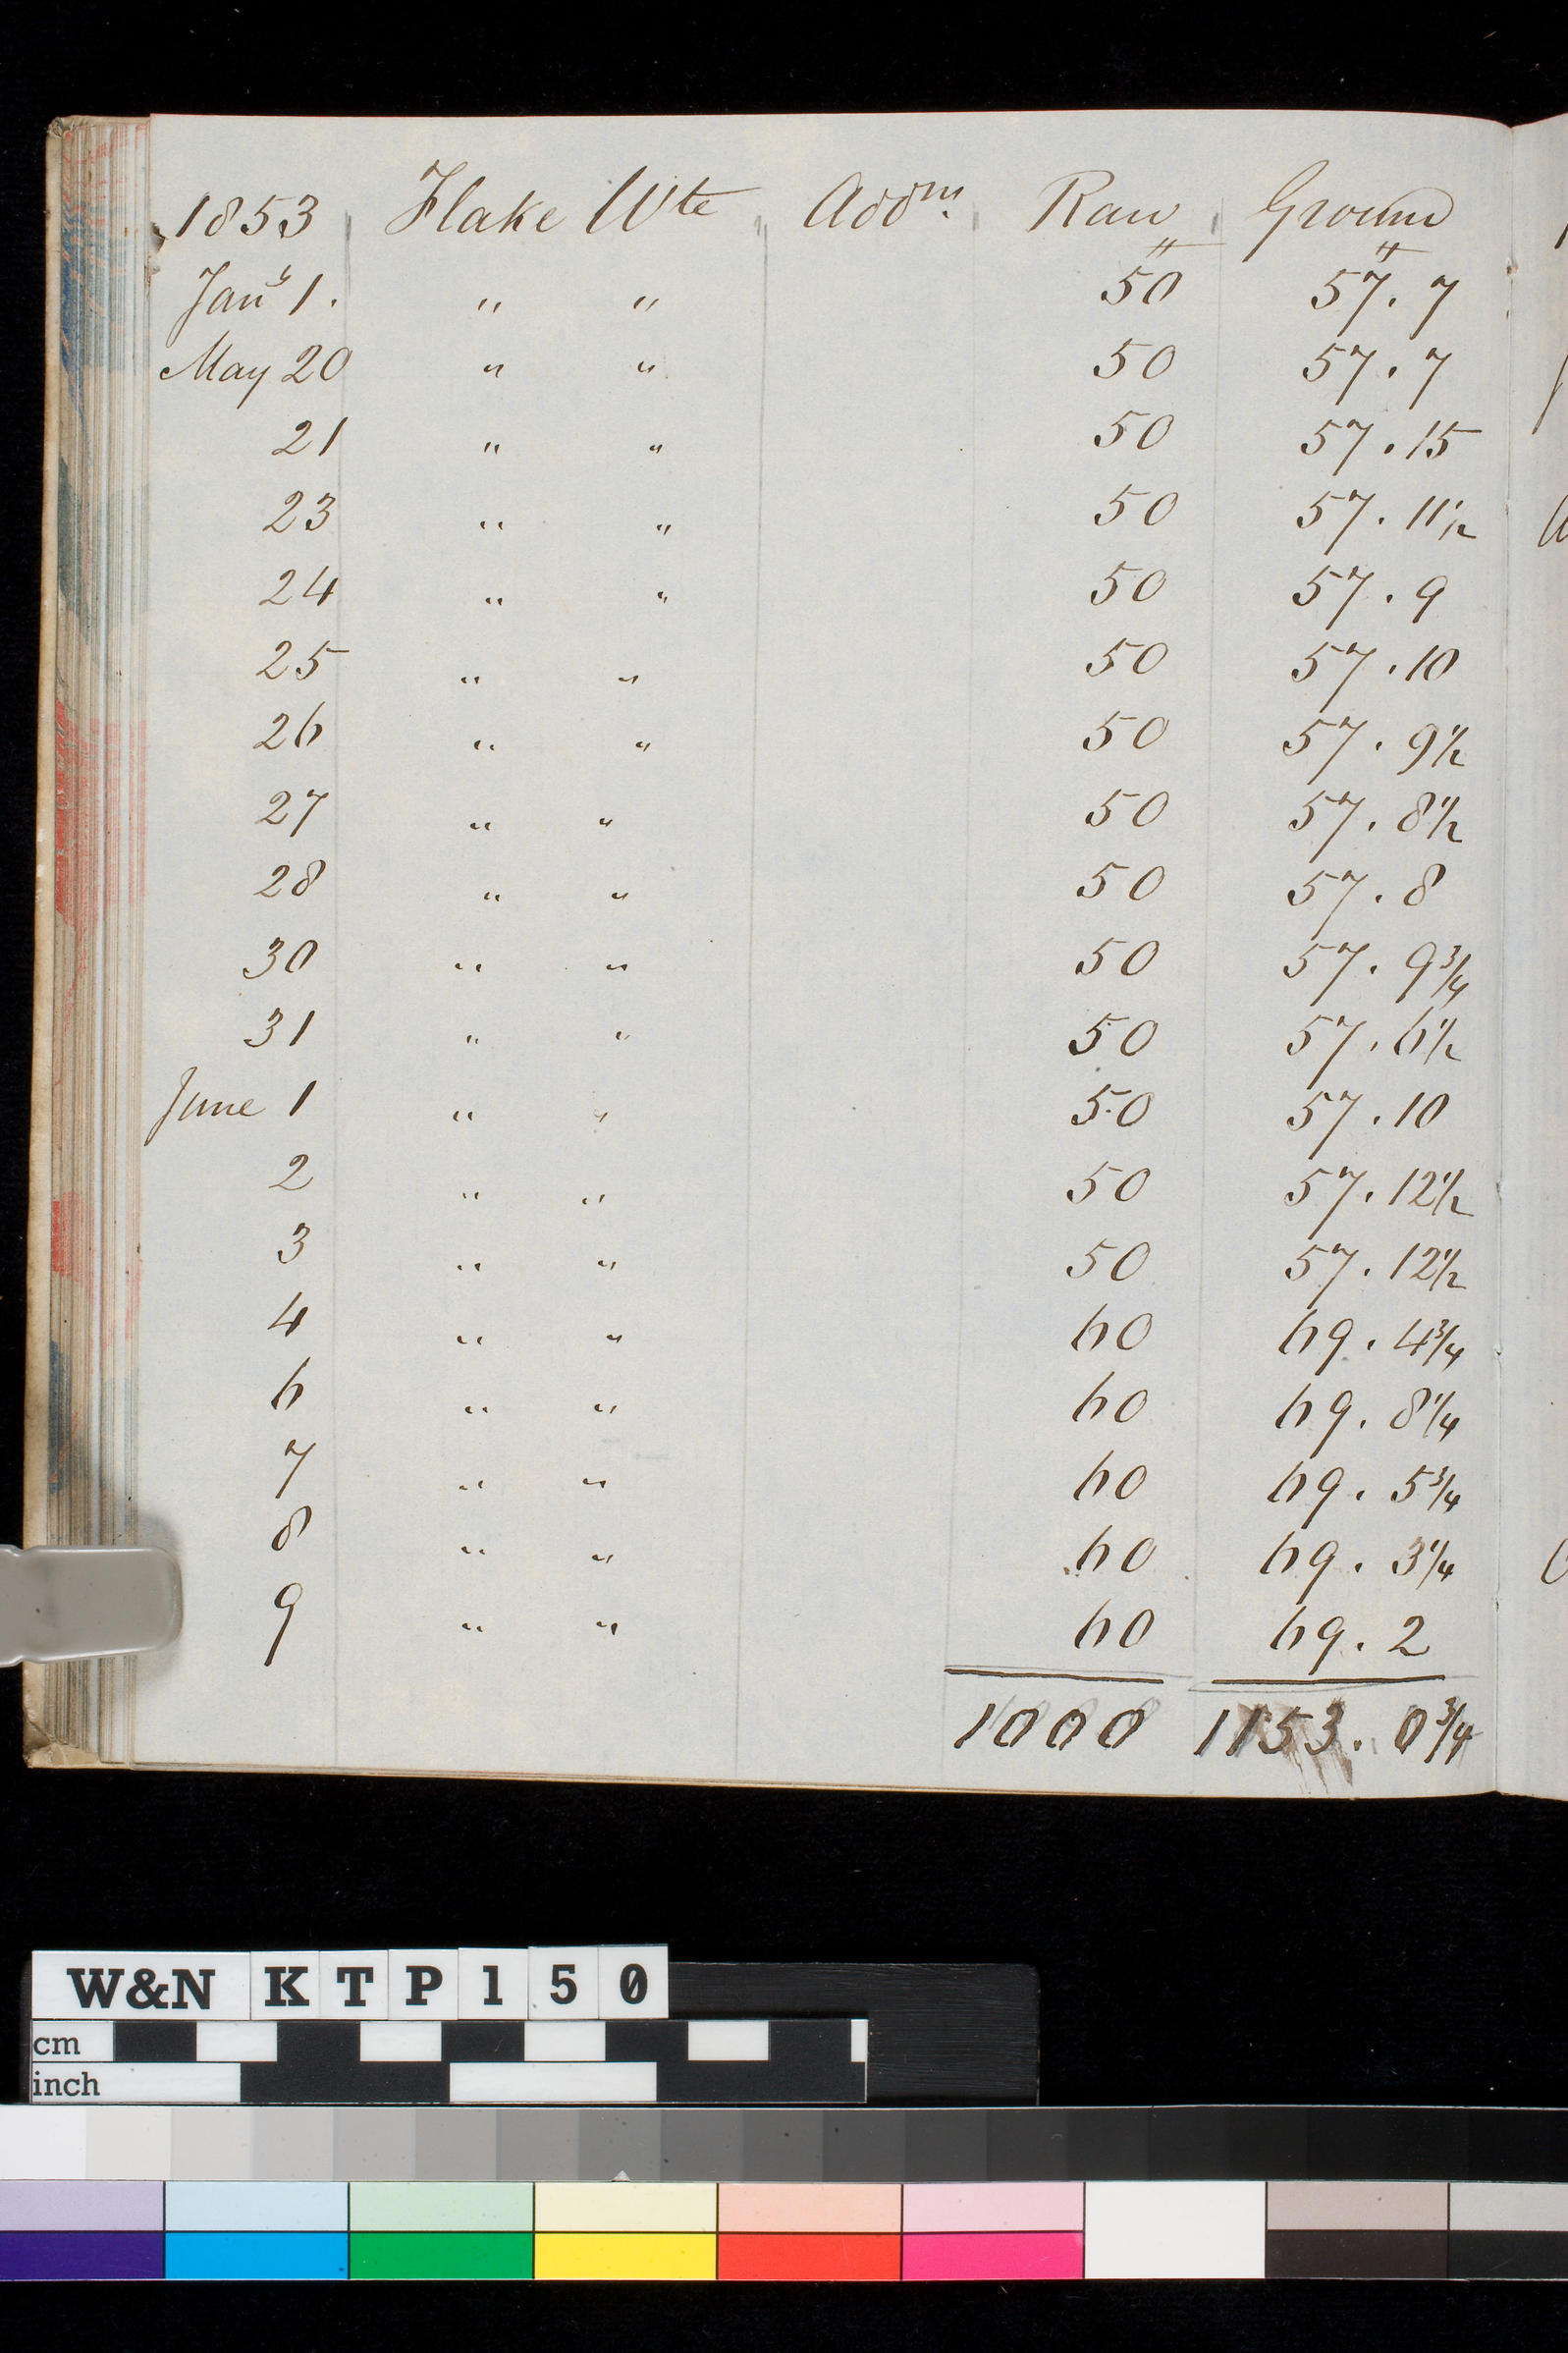 1853 Flake Wte Addm. Raw Ground
Jany 1. " " 50 57.7
May 20 " " 50 57.7
21 " " 50 57.15
23 " " 50 57.11½
24 " " 50 57.9
25 " " 50 57.10
26 " " 50 57.9½
27 " " 50 57.8½
28 " " 50 57.8
30 " " 50 57.9¾
31 " " 50 57.6½
June 1 " " 50 57.10
2 " " 50 57.12½
3 " " 50 57.12½
4 " " 60 69.4¾
6 " " 60 69.8¼
7 " " 60 69.5¾
8 " " 60 69.3¼
9 " " 60 69.2
1000 1153.0¾
W&N KTP150
cm
inch